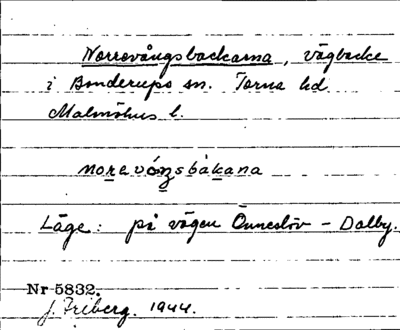 Norrevångsbackarna, vägbacke
i Bonderups sn. Torna hd
Malmöhus l.
norevóŋsbákana
Läge: på vägen Önneslöv - Dalby.
Nr 5832.
J. Friberg. 1944.